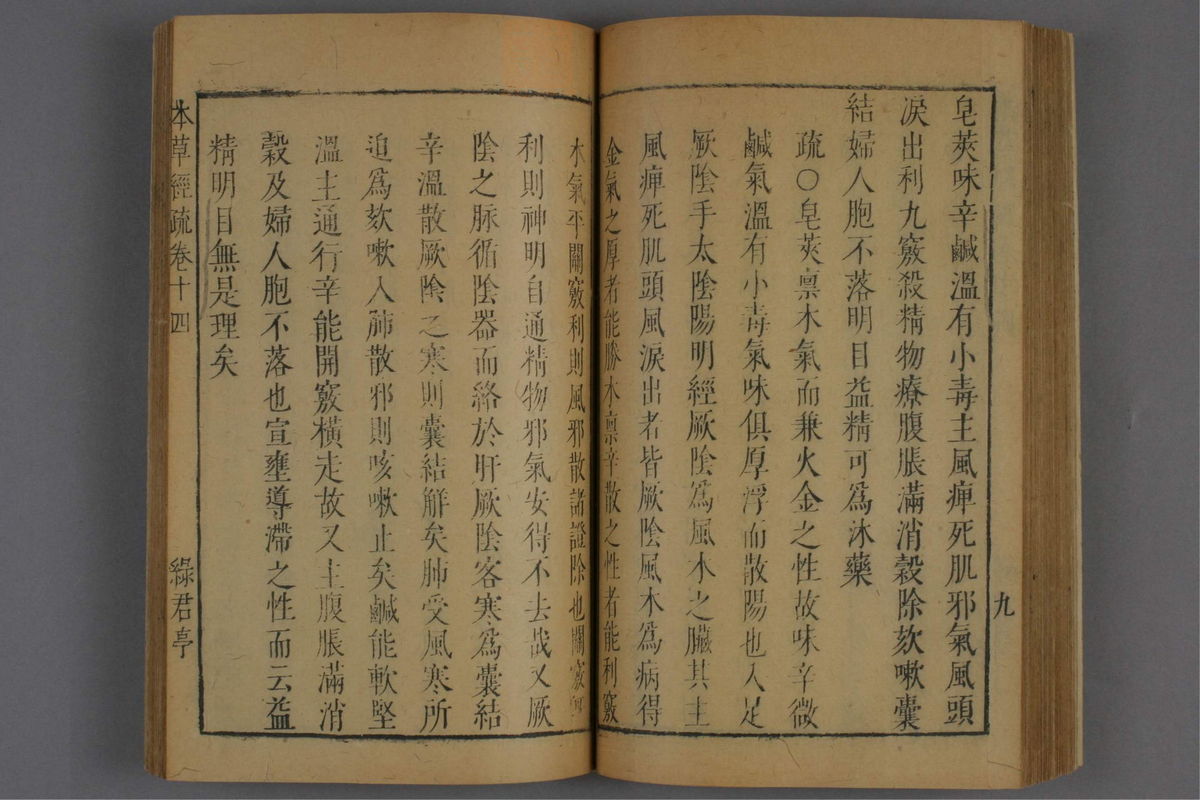 皂莢味辛鹹溫有小毒主風痺死肌邪氣風頭
淚出利九竅殺精物療腹脹滿消穀除欬嗽囊
結婦人胞不落明目益精可為沐藥
疏〇皂莢禀木氣而兼火金之性故味辛微
鹹氣溫有小毒氣味俱厚浮而散陽也入足
厥陰手太陰陽明經厥陰為風木之臟其主
風痺死肌頭風淚出者皆厥陰風木為病得
金氣之厚者能勝木禀辛散之性者能利竅
木氣平關竅利則風邪散諸證除也關竅
利則神明自通精物邪氣安得不去哉又厥
陰之脉循陰器而絡於肝厥陰客寒為囊結
辛溫散厥陰之寒則囊結解矣肺受風寒所
迫為欬嗽入肺散邪則咳嗽止矣鹹能軟堅
溫主通行辛能開竅橫走故又主腹脹滿消
穀及婦人胞不落也宣壅導滯之性而云益
精明目無是理矣
九
本草經疏卷十四
綠君亭